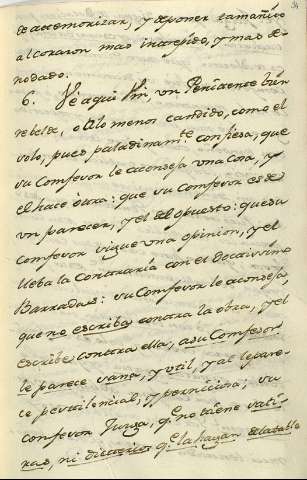 de atemorizar, y deponer tamañito
al corazon mas intrepido, y mas de-
nodado.
6. Ve aqui Vm, un Penitente bien
rebelde, o alo menos candido, como el
solo, pues paladinam.te confiesa, que
su Comfesor le aconseja una Cosa, y
el hace otra: que su Comfesor es de
un parecer, y el del opuesto: que su
Comfesor sigue una opinion, y el
lleba la Contraria con el Doctissimo
Barradas: su Comfesor le aconseja,
que no escriba contra la obra, y el
escribe contra ella, a su Comfesor
le parece vana, y util, y al le pare-
ce pestilencial, y perniciosa; su
Confesor Juzga, q.e no tiene
ni dicterios q.e la hagan detestable